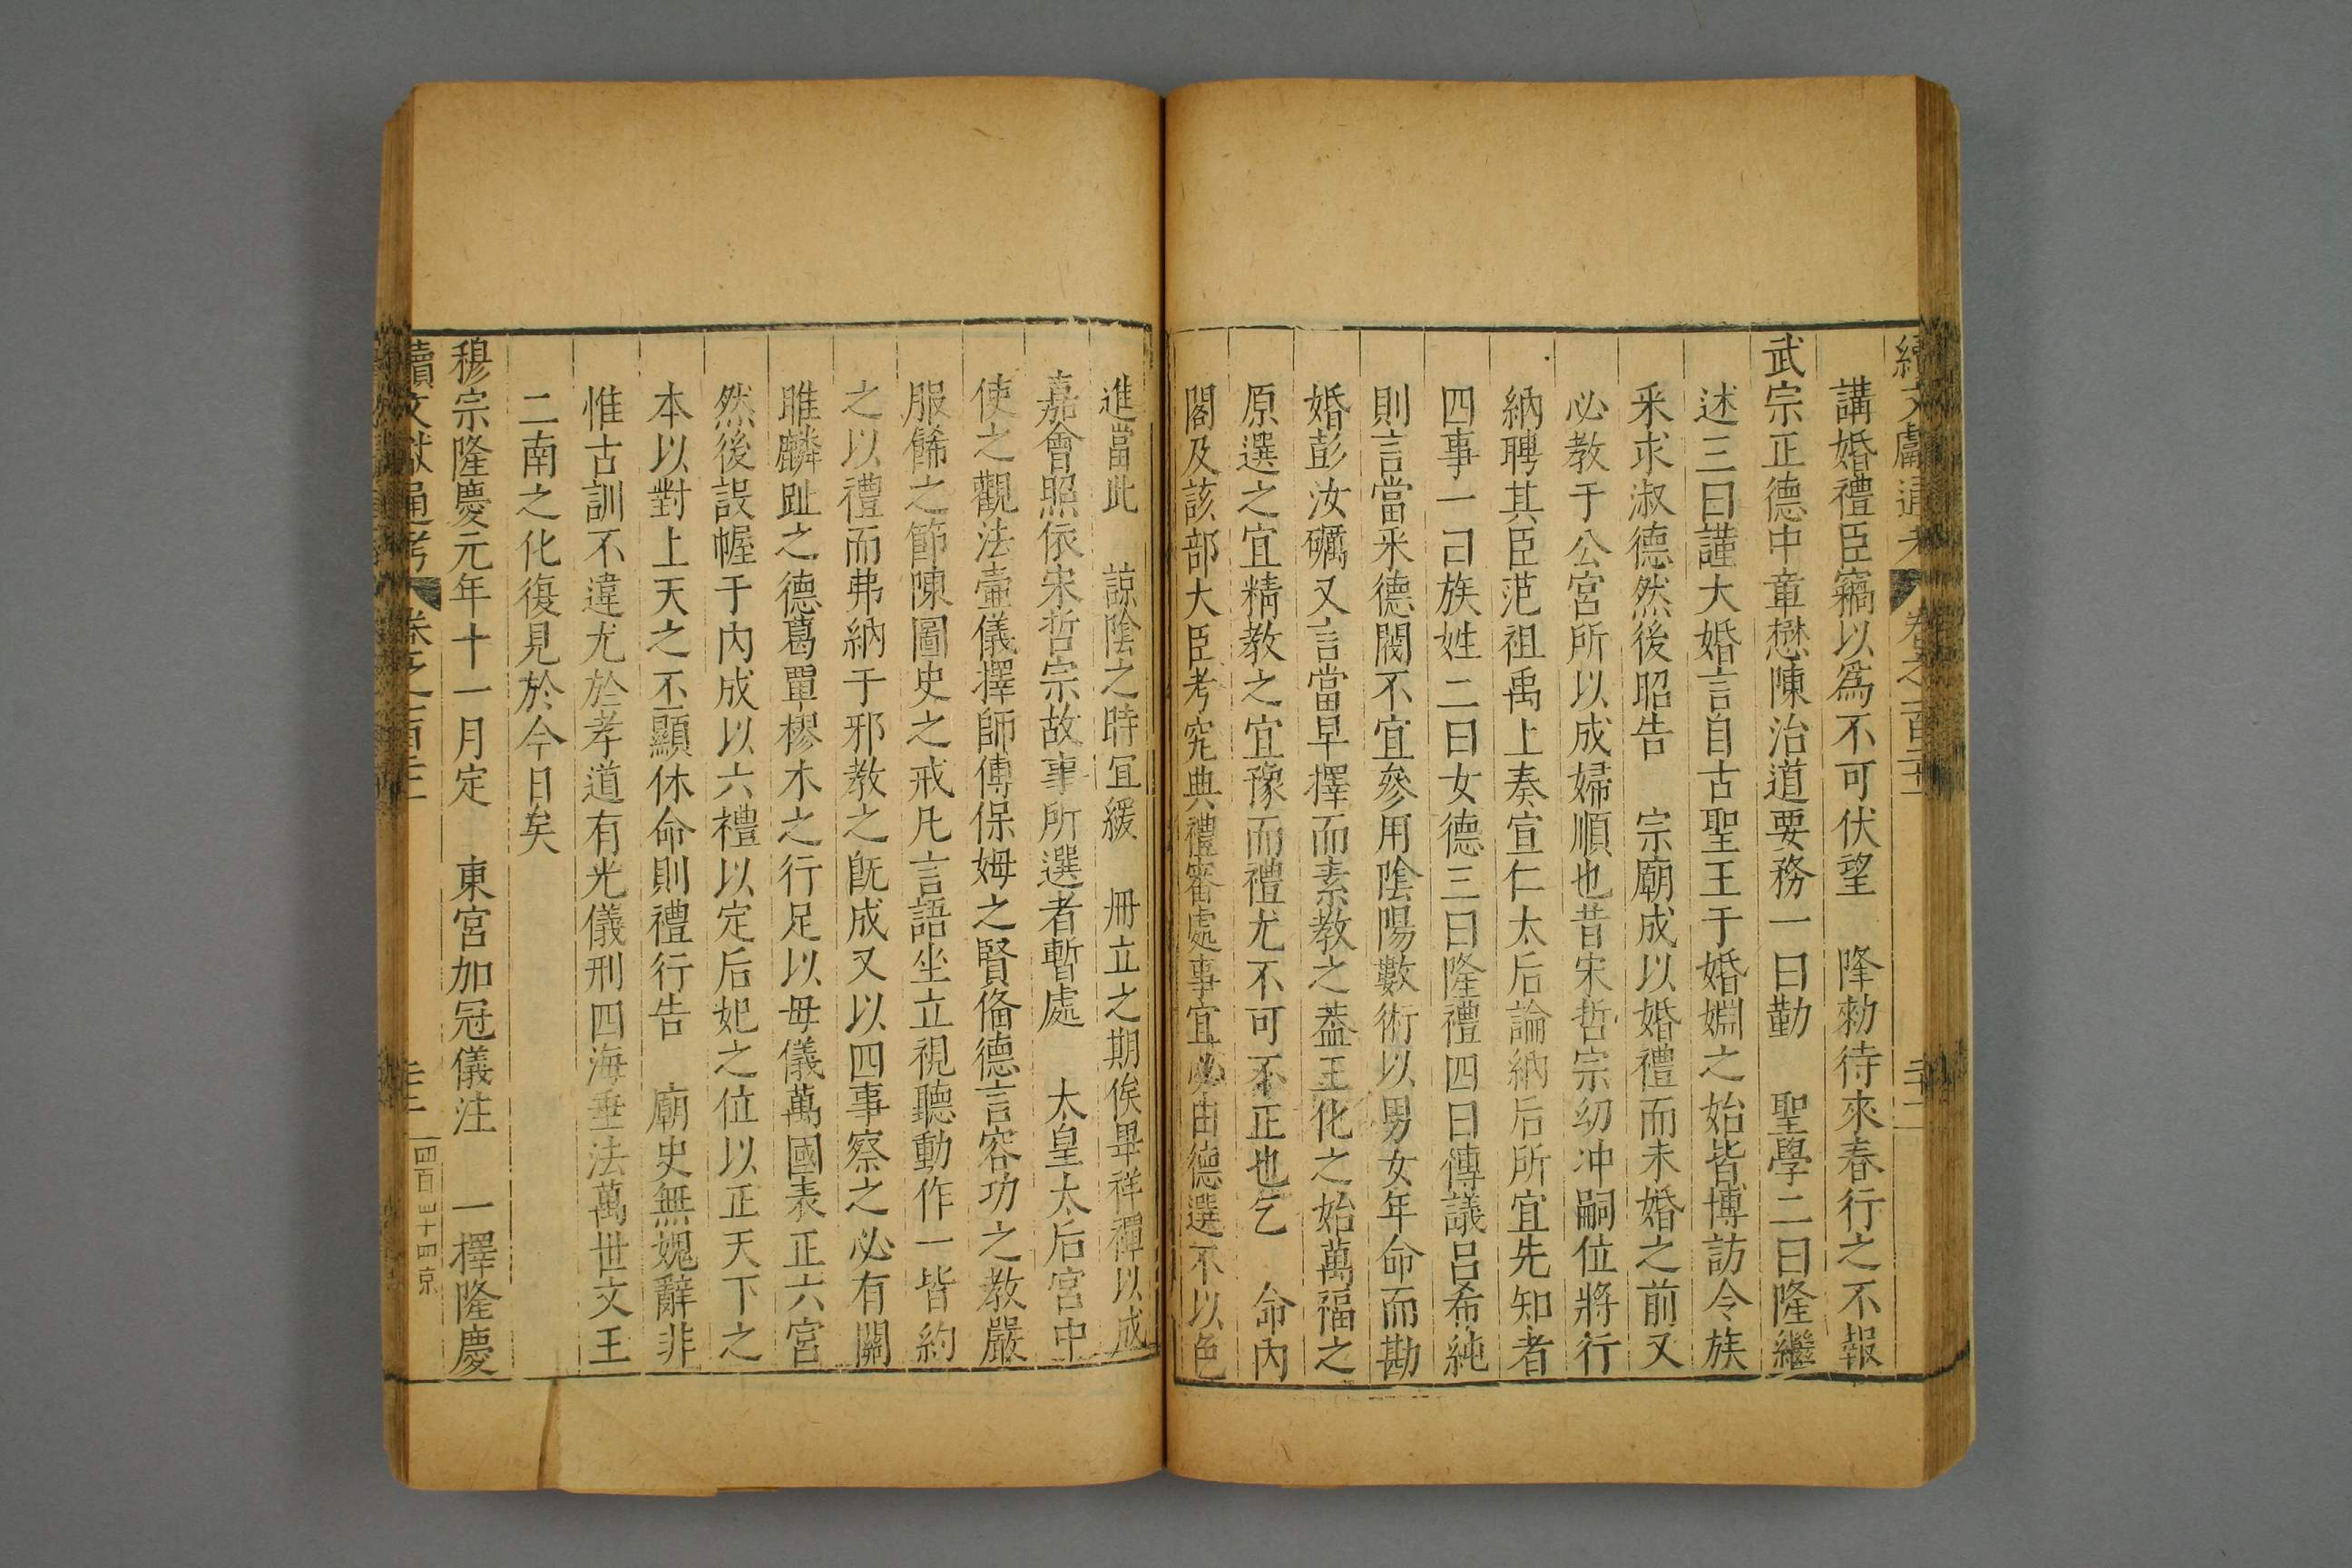 續文獻通考 卷之一百二十 二十二
講婚禮臣竊以爲不可伏望 隆勑待來春行之不報
武宗正德中章懋陳治道要務一曰勤 聖學二曰隆繼
述三曰謹大婚言自古聖王于婚姻之始皆博訪令族
釆求淑德然後昭告 宗廟成以婚禮而未婚之前又
必教于公宮所以成婦順也昔宋哲宗幼冲嗣位將行
納聘其臣范祖禹上奏宣仁太后論納后所宜先知者
四事一曰族姓二曰女德三曰隆禮四曰博議呂希純
則言當釆德閥不宜參用陰陽數術以男女年命而勘
婚彭汝礪又言當早擇而素教之蓋王化之始萬福之
原選之宜精教之宜豫而禮尤不可不正也乞 命內
閣及該部大臣考究典禮審處事宜必由德選不以色
進當此 諒陰之時宜緩 冊立之期俟畢祥禫以成
嘉會照依宋哲宗故事所選者暫處 太皇太后宮中
使之觀法壼儀擇師傅保姆之賢俻德言容功之教嚴
服餙之節陳圖史之戒凡言語坐立視聽動作一皆約
之以禮而弗納于邪教之旣成又以四事察之必有關
雎麟趾之德葛覃樛木之行足以母儀萬國表正六宮
然後設幄于內成以六禮以定后妃之位以正天下之
本以對上天之不顯休命則禮行告 廟史無媿辭非
惟古訓不違尤於孝道有光儀刑四海垂法萬世文王
二南之化復見於今日矣
穆宗隆慶元年十一月定 東宮加冠儀注 一擇隆慶
續文獻通考 卷之一百二十 四百四十四京